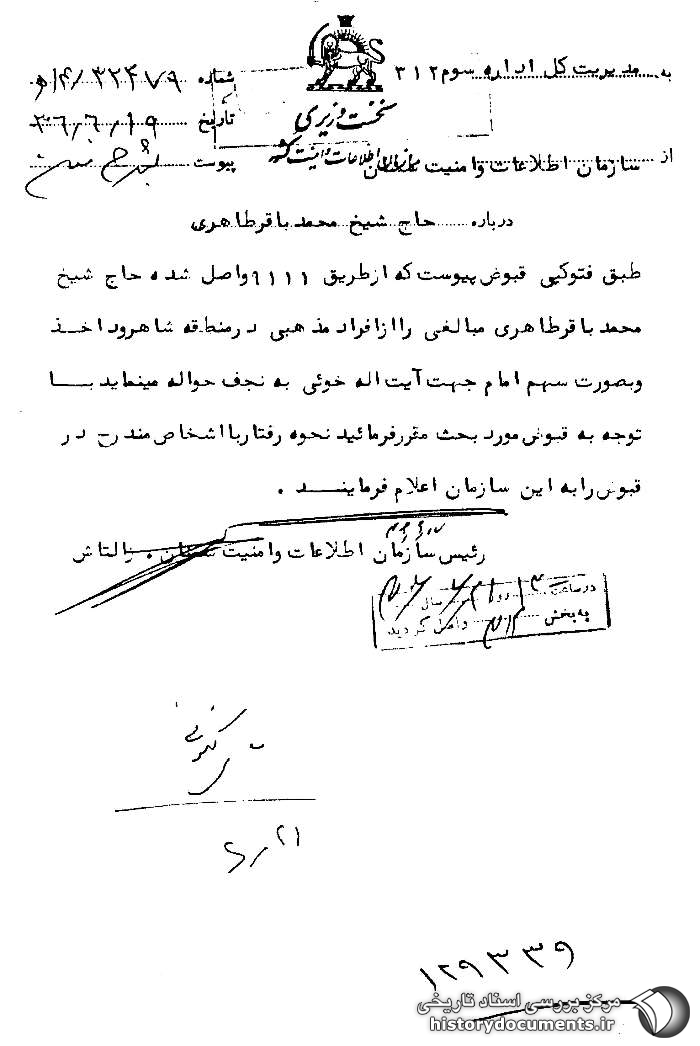 به مدیریت کل اداره سوم ۳۱۲
شماره ۳۲۴۷۹/۱۴ه
نخست وزیری
تاریخ ۳۶/۶/۱۹
سازمان اطلاعات و امنیت کشور
از سازمان اطلاعات و امنیت
پیوست بشرح متن
درباره حاج شیخ محمد باقر طاهری
طبق فتوکپی قبوض پیوست که ازطریق ۹۱۱۱ واصل شده حاج شیخ
محمد باقر طاهری مبالغی را از افراد مذهبی در منطقه شاهرود اخذ
و بصورت سهم امام جهت آیت اله خوئی به نجف حواله مینماید با
توجه به قبوض مورد بحث مقرر فرمائید نحوه رفتار با اشخاص مندرج در
قبوض را به این سازمان اعلام فرمایند .
رئیس سازمان اطلاعات و امنیت . زالتاش
در ساعت روز سال
به بخش ۳۱۲ واصل گردید
۲۱/۶
۱۲۹۳۳۹
مرکز بررسی اسناد تاریخی
historydocuments.ir